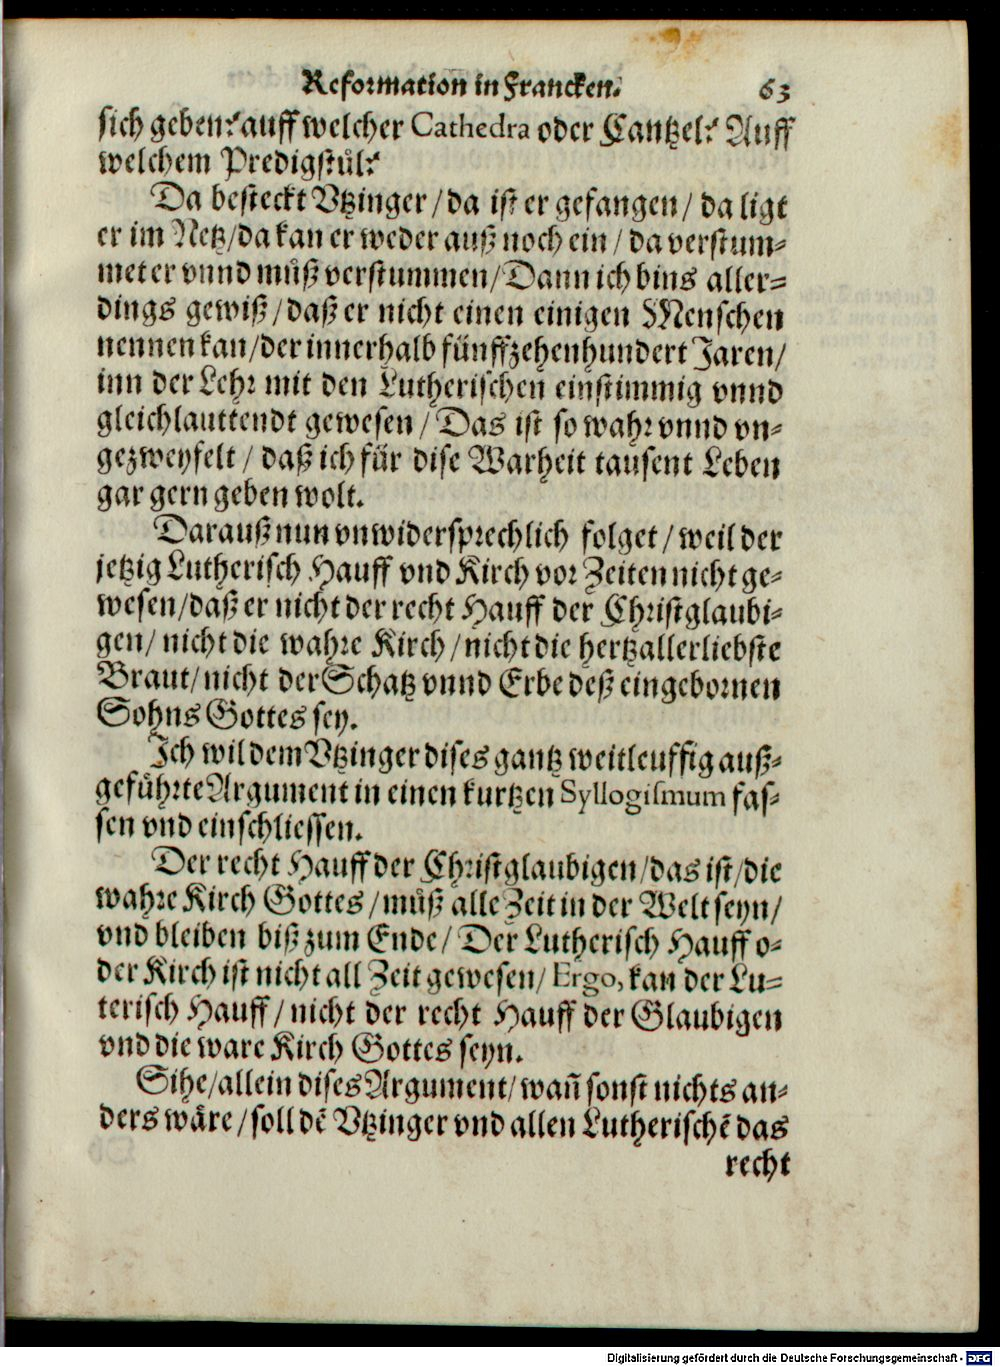 Reformation in Francken. 63
sich geben? auff welcher Cathedra oder Cantzel? Auff
welchem Predigstůl?
Da besteckt Vtzinger / da ist er gefangen / da ligt
er im Netz / da kan er weder auß noch ein / da verstum-
met er vnnd můß verstummen / Dann ich bins aller-
dings gewiß / daß er nicht einen einigen Menschen
nennen kan / der innerhalb fünffzehenhundert Jaren /
inn der Lehr mit den Lutherischen einstimmig vnnd
gleichlauttendt gewesen / Das ist so wahr vnnd vn-
gezweyfelt / daß ich für dise Warheit tausent Leben
gar gern geben wolt.
Darauß nun vnwidersprechlich folget / weil der
jetzig Lutherisch Hauff vnd Kirch vor Zeiten nicht ge-
wesen / daß er nicht der recht Hauff der Christglaubi-
gen / nicht die wahre Kirch / nicht die hertzallerliebste
Braut / nicht der Schatz vnnd Erbe deß eingebornen
Sohns Gottes sey.
Ich wil dem Vtzinger dises gantz weitleuffig auß-
geführte Argument in einen kurtzen Syllogismum fas-
sen vnd einschliessen.
Der recht Hauff der Christglaubigen / das ist / die
wahre Kirch Gottes / můß alle Zeit in der Welt seyn /
vnd bleiben biß zum Ende / Der Lutherisch Hauff o-
der Kirch ist nicht all Zeit gewesen / Ergo, kan der Lu-
terisch Hauff / nicht der recht Hauff der Glaubigen
vnd die ware Kirch Gottes seyn.
Sihe / allein dises Argument / wañ sonst nichts an-
ders wäre / soll dē Vtzinger vnd allen Lutherischē das
recht
Digitalisierung gefördert durch die Deutsche Forschungsgemeinschaft - DFG